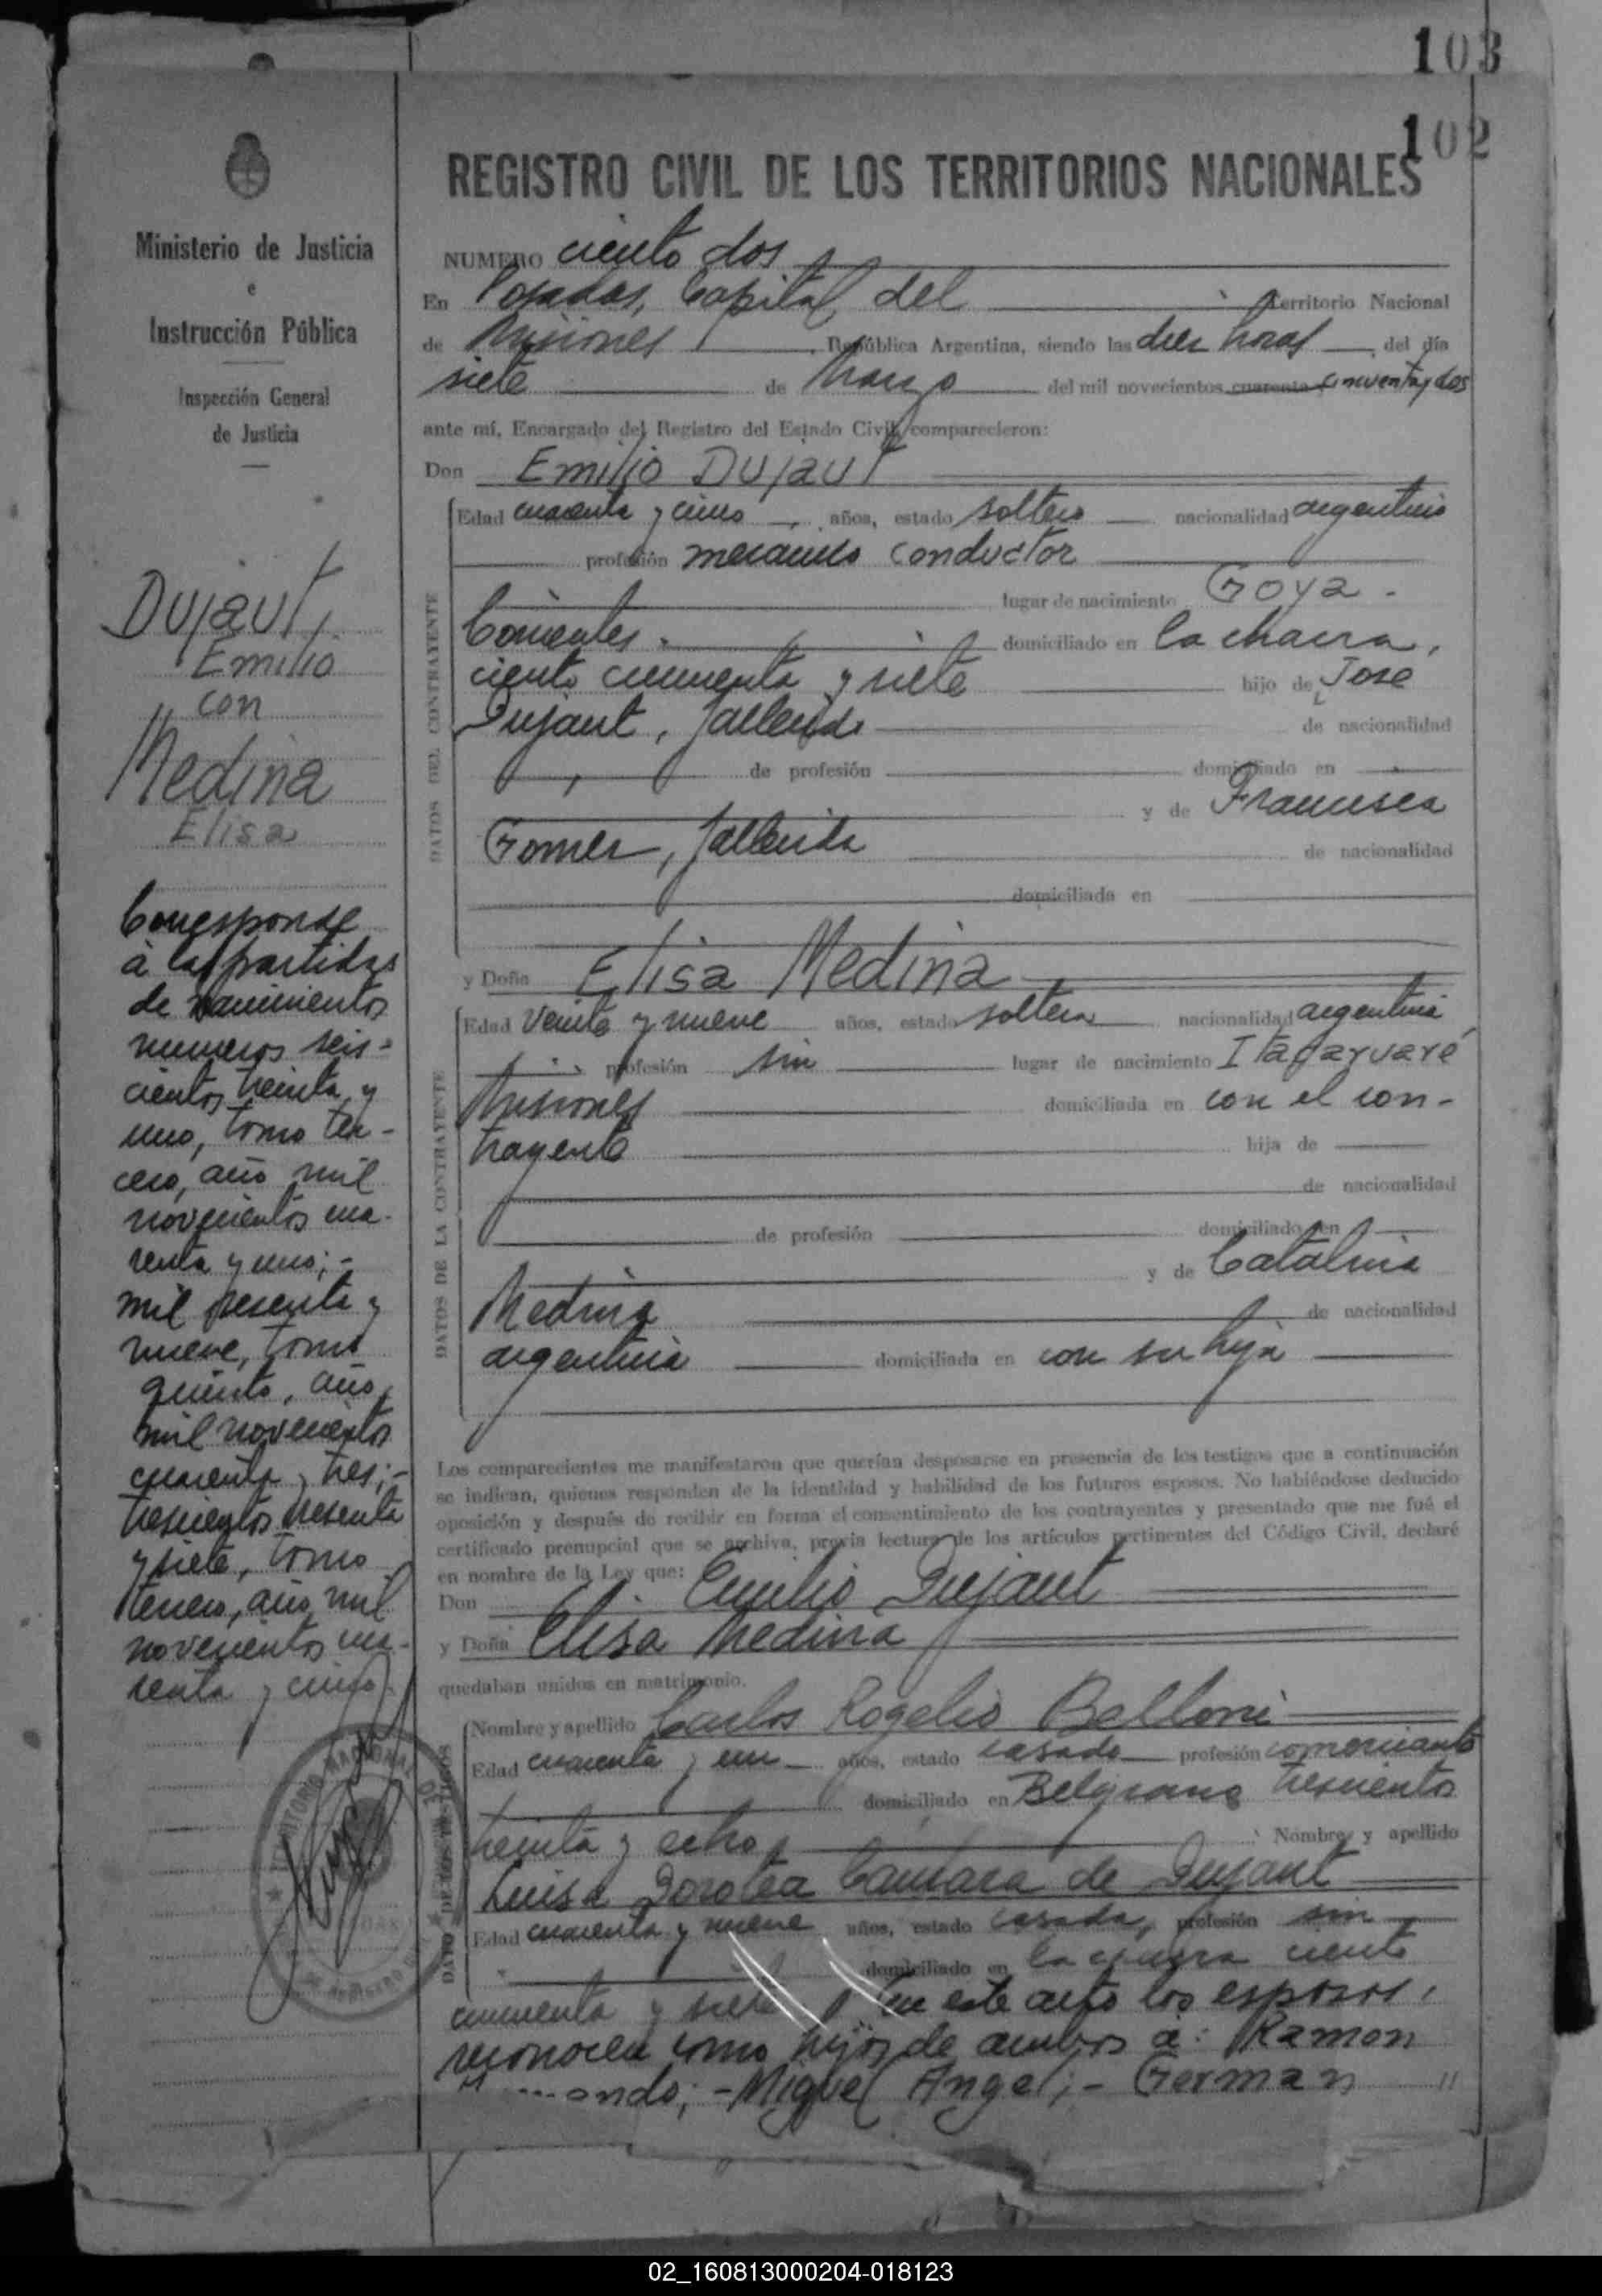 103
102
REGISTRO CIVIL DE LOS TERRITORIOS NACIONALES
Ministerio de Justicia
e
Instrucción Pública
Inspección General
de Justicia
Dujaut,
Emilio
con
Medina
Elisa
Corresponde
a las partidas
de nacimientos
numeros seis-
cientos treinta y
uno, tomo ter-
cero, año mil
novecientos cua-
renta y uno;-
mil sesenta y
nueve, tomo
quinto, año
mil novecientos
cuarenta y tres;-
trescientos sesenta
y siete, tomo
tercero, año mil
novecientos cua-
renta y cinco.
TERRITORIO NACIONAL DE
NUMERO ciento dos
En Posadas, Capital del Territorio Nacional
de Misiones República Argentina, siendo las diez horas, del día
siete de Marzo del mil novecientos cuarenta cincuenta y dos
ante mí, Encargado del Registro del Estado Civil, comparecieron:
Don Emilio Dujaut
DATOS DEL CONTRAYENTE
Edad cuarenta y cinco años, estado soltero nacionalidad argentino
profesión mecanico conductor
lugar de nacimiento Goya -
Corrientes. domiciliado en la chacra,
ciento cincuenta y siete hijo de José
Dujaut, fallecido de nacionalidad
de profesión domiciliado en
y de Francisca
Gomez, fallecida de nacionalidad
domiciliada en
y Doña Elisa Medina
DATOS DE LA CONTRAYENTE
Edad veinte y nueve años, estado soltera nacionalidad argentina
profesión sin lugar de nacimiento Itacaruaré
Misiones domiciliada en con el con-
trayente hija de
de nacionalidad
de profesión domiciliado en
y de Catalina
Medina de nacionalidad
argentina domiciliada en con su hija
Los comparecientes me manifestaron que querían desposarse en presencia de los testigos que a continuación
se indican, quienes responden de la identidad y habilidad de los futuros esposos. No habiéndose deducido
oposición y después de recibir en forma el consentimiento de los contrayentes y presentado que me fué el
certificado prenupcial que se archiva, previa lectura de los artículos pertinentes del Código Civil, declaré
en nombre de la Ley que:
Don Emilio Dujaut
y Doña Elisa Medina
quedaban unidos en matrimonio.
DATO DE LOS TESTIGOS
Nombre y apellido Carlos Rogelio Belloni
Edad cuarenta y un años, estado casado profesión comerciante
domiciliado en Belgrano trescientos
treinta y ocho Nombre y apellido
Luisa Dorotea de Dujaut
Edad cuarenta y nueve años, estado casada, profesión sin
domiciliado en la chacra ciento
cincuenta y siete En este acto los esposos,
reconocen como hijos de ambos a: Ramon
ando; - Miguel Angel; - German "
02_160813000204-018123